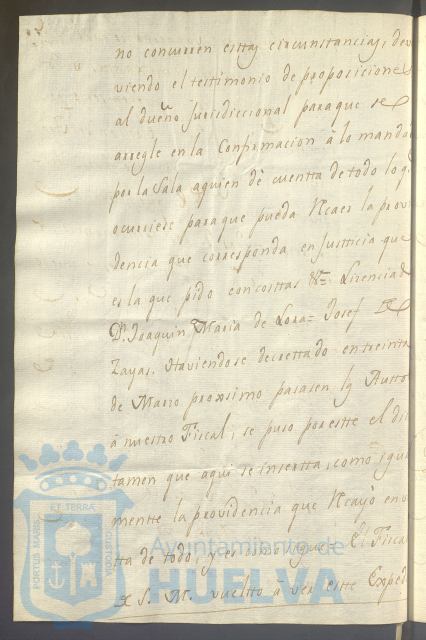 no concurren estas circunstancias, de
viendo el testimonio de proposiciones
al dueño Jurisdiccional para que se
arregle en la Confirmacion à lo manda
por la Sala aquien dè cuentta de todo lo q
ocurriese para que pueda Rcaer la provi
dencia que corresponda en Justticia que
es la que pido con costtas &ª Lizenciad
Dⁿ Joaquin Maria de Lora= Josef
Zayas. Haviendose decrettado en treinta
de Marzo proximo pasasen los Autto
à nuestro Fiscal, se puso por estte el dic
tamen que aqui se insertta, como igual
mentte la providencia que Rcayò en vis
tta de todo, y es como sigue= El Fiscal
de S. M. vueltto à ver estte Exped
PORTUS MARIS
ET TERRÆ
CUSTODIA
Ayuntamiento de
HUELVA